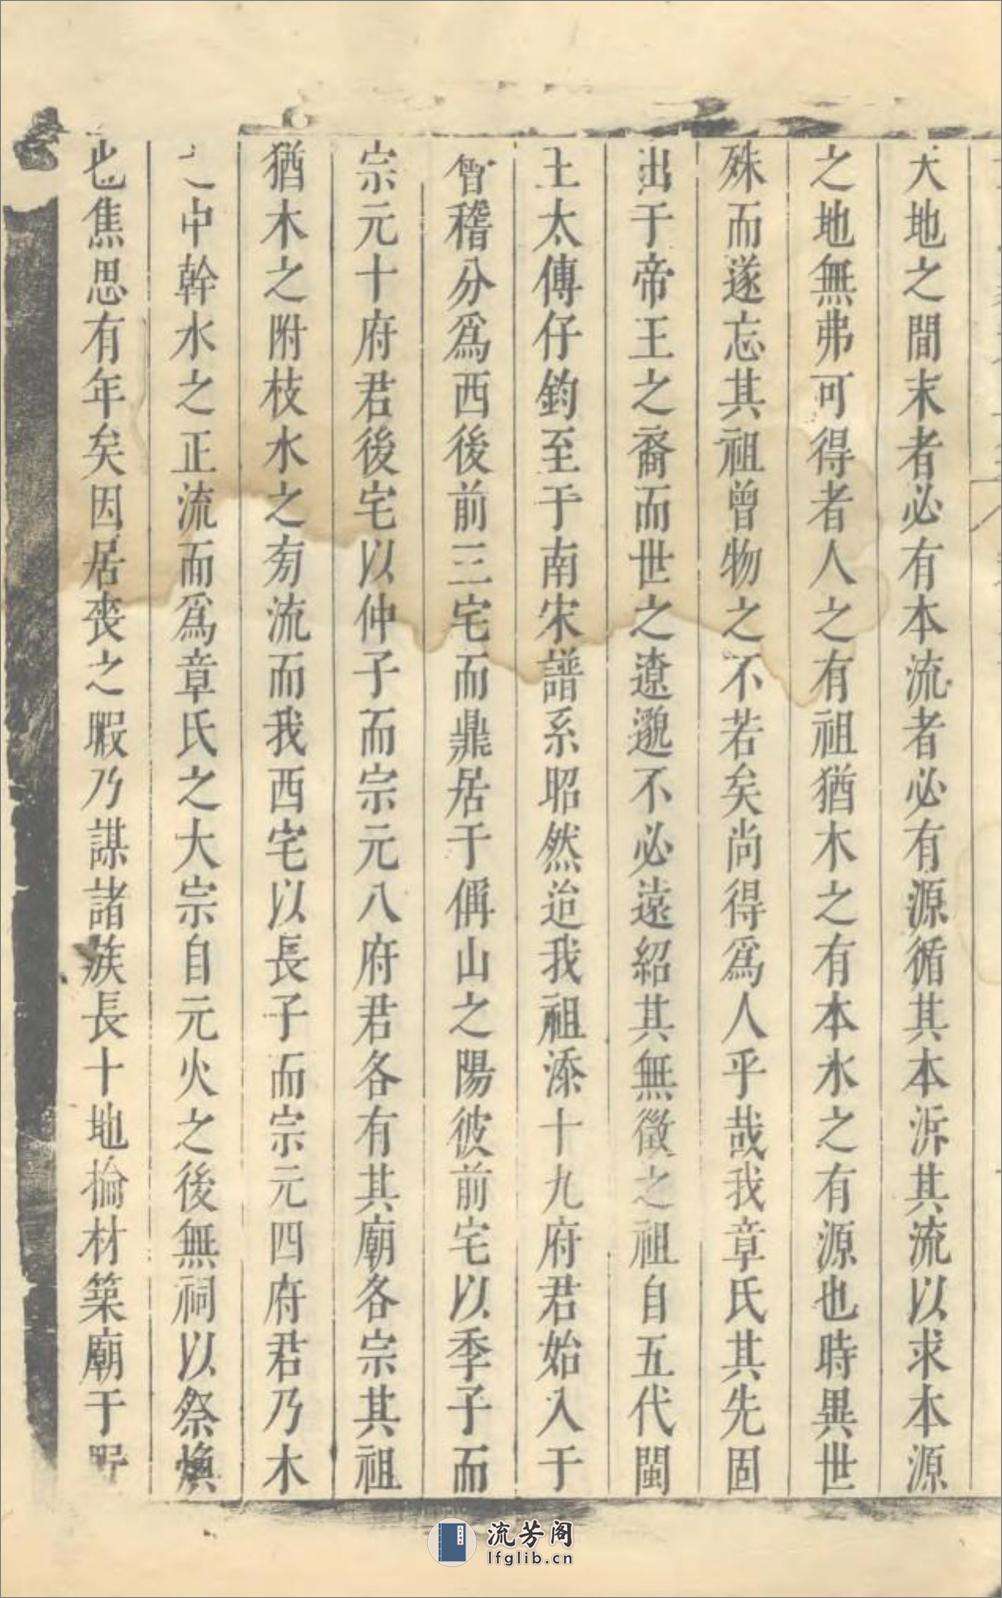 天地之間末者必有本流者必有源循其本泝其流以求本源
之地無弗可得者人之有祖猶木之有本水之有源也時異世
殊而遂忘其祖曾物之不若矣尚得爲人乎哉我章氏其先固
出于帝王之裔而世之遼邈不必遠紹其無徵之祖自五代閩
王太傅仔鈞至于南宋譜系昭然迨我祖添十九府君始入于
會稽分爲西後前三宅而鼎居于偁山之陽彼前宅以季子而
宗元十府君後宅以仲子而宗元八府君各有其廟各宗其祖
猶木之附枝水之㫄流而我西宅以長子而宗元四府君乃木
之中幹水之正流而爲章氏之大宗自元火之後無祠以祭煥
也焦思有年矣因居喪之暇乃謀諸族長十地掄材築廟于
流芳阁
lfglib.cn